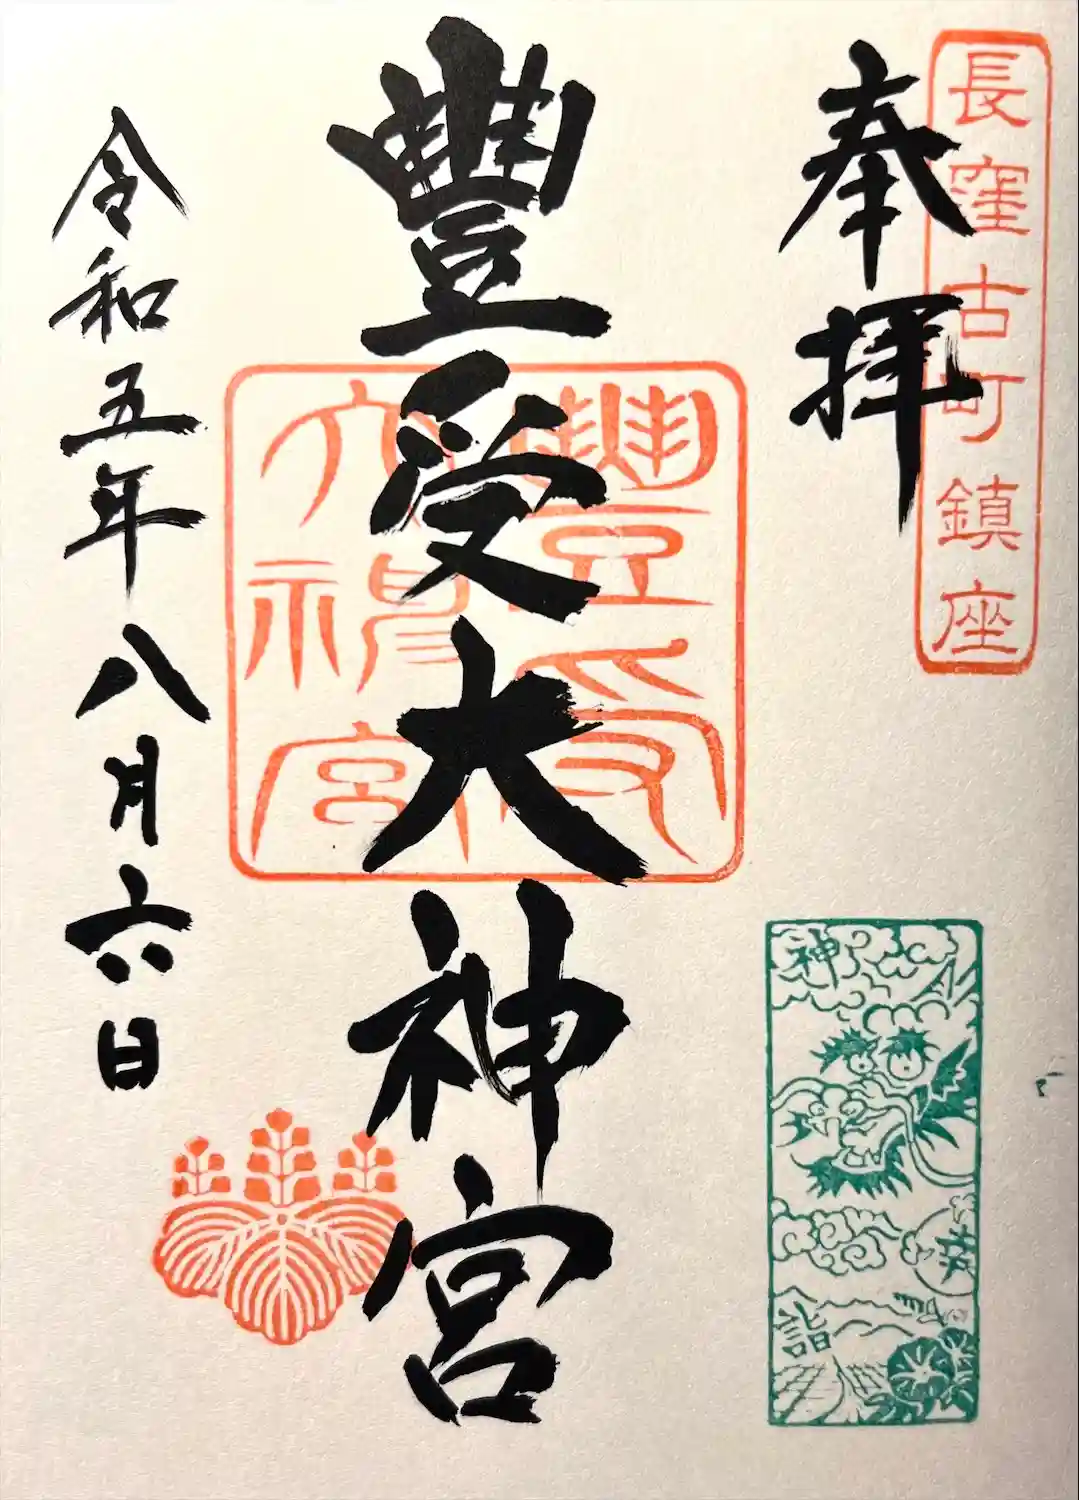 長窪古町鎮座
奉拝
豐受大神宮
豐受
大神宮
令和五年八月六日
神
幸
詣